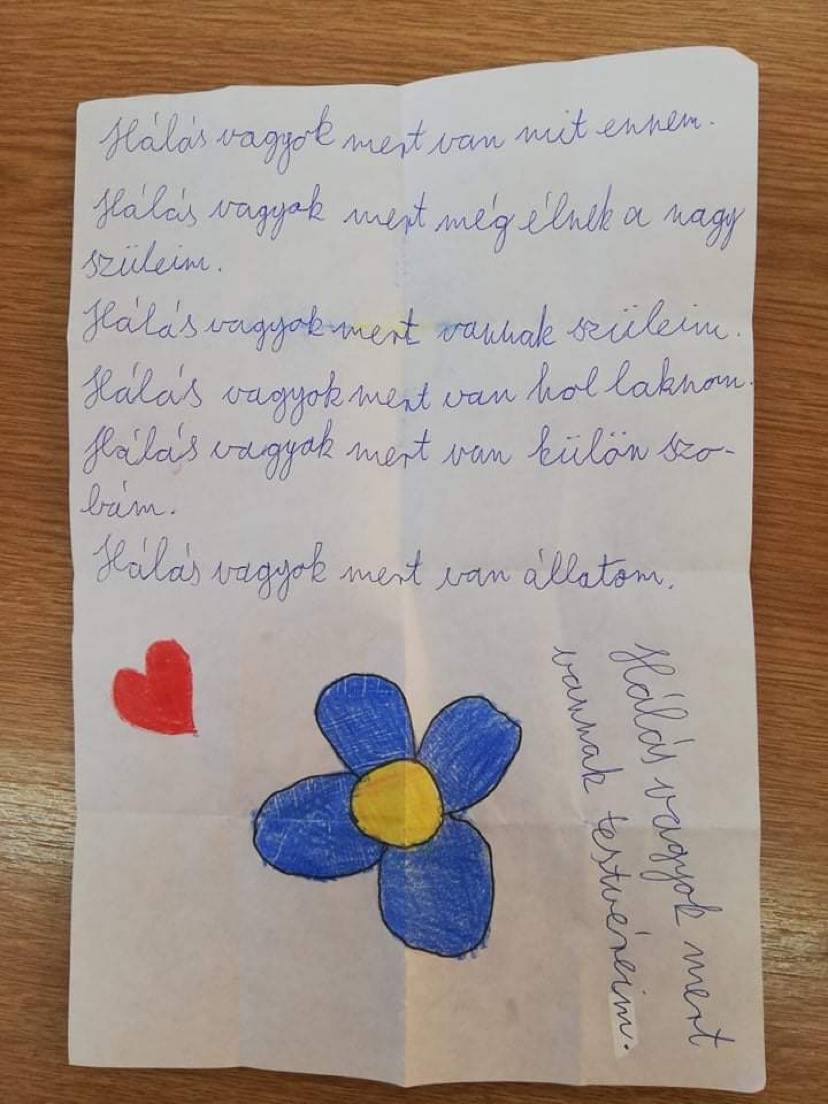 Hálás vagyok mert van mit ennem.
Hálás vagyok mert még élnek a nagy
szüleim.
Hálás vagyok mert vannak szüleim.
Hálás vagyok mert van hol laknom.
Hálás vagyok mert van külön szo-
bám.
Hálás vagyok mert van állatom.
Hálás vagyok mert
vannak testvéreim.